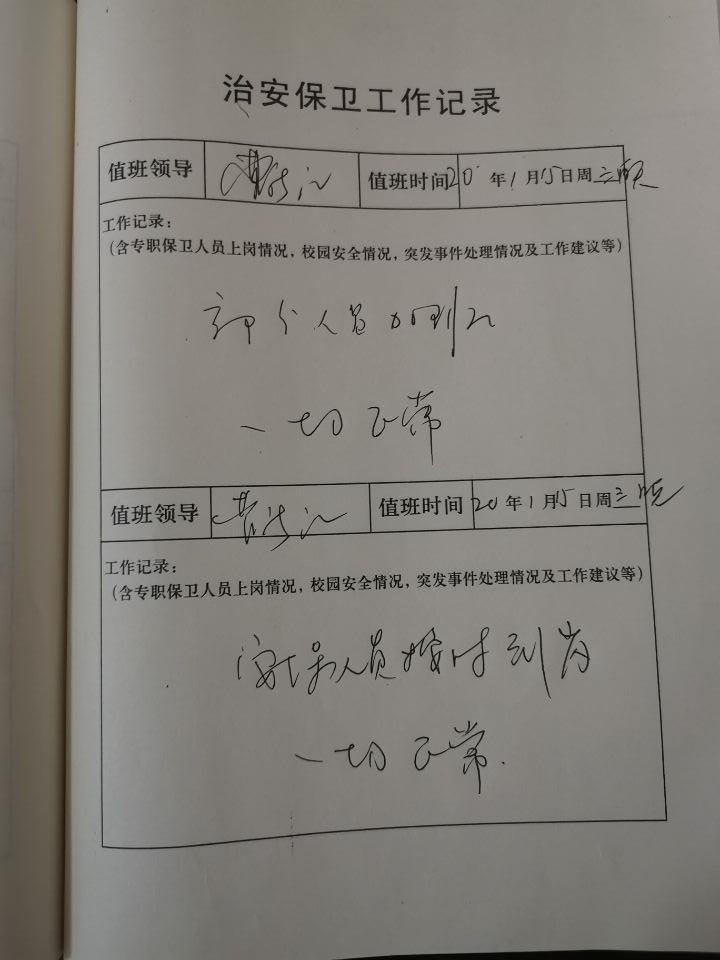 治安保卫工作记录
值班领导 值班时间 20 年 1 月 15 日周 三
工作记录：
（含专职保卫人员上岗情况，校园安全情况，突发事件处理情况及工作建议等）
人员
一切正常
值班领导 值班时间 20 年 1 月 15 日周 三 晚
工作记录：
（含专职保卫人员上岗情况，校园安全情况，突发事件处理情况及工作建议等）
安保人员按时到岗
一切正常.